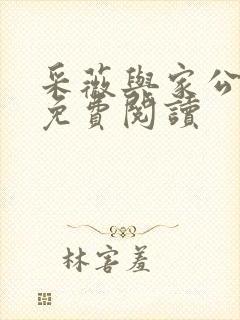 采薇與家公
免費閱讀
林害羞